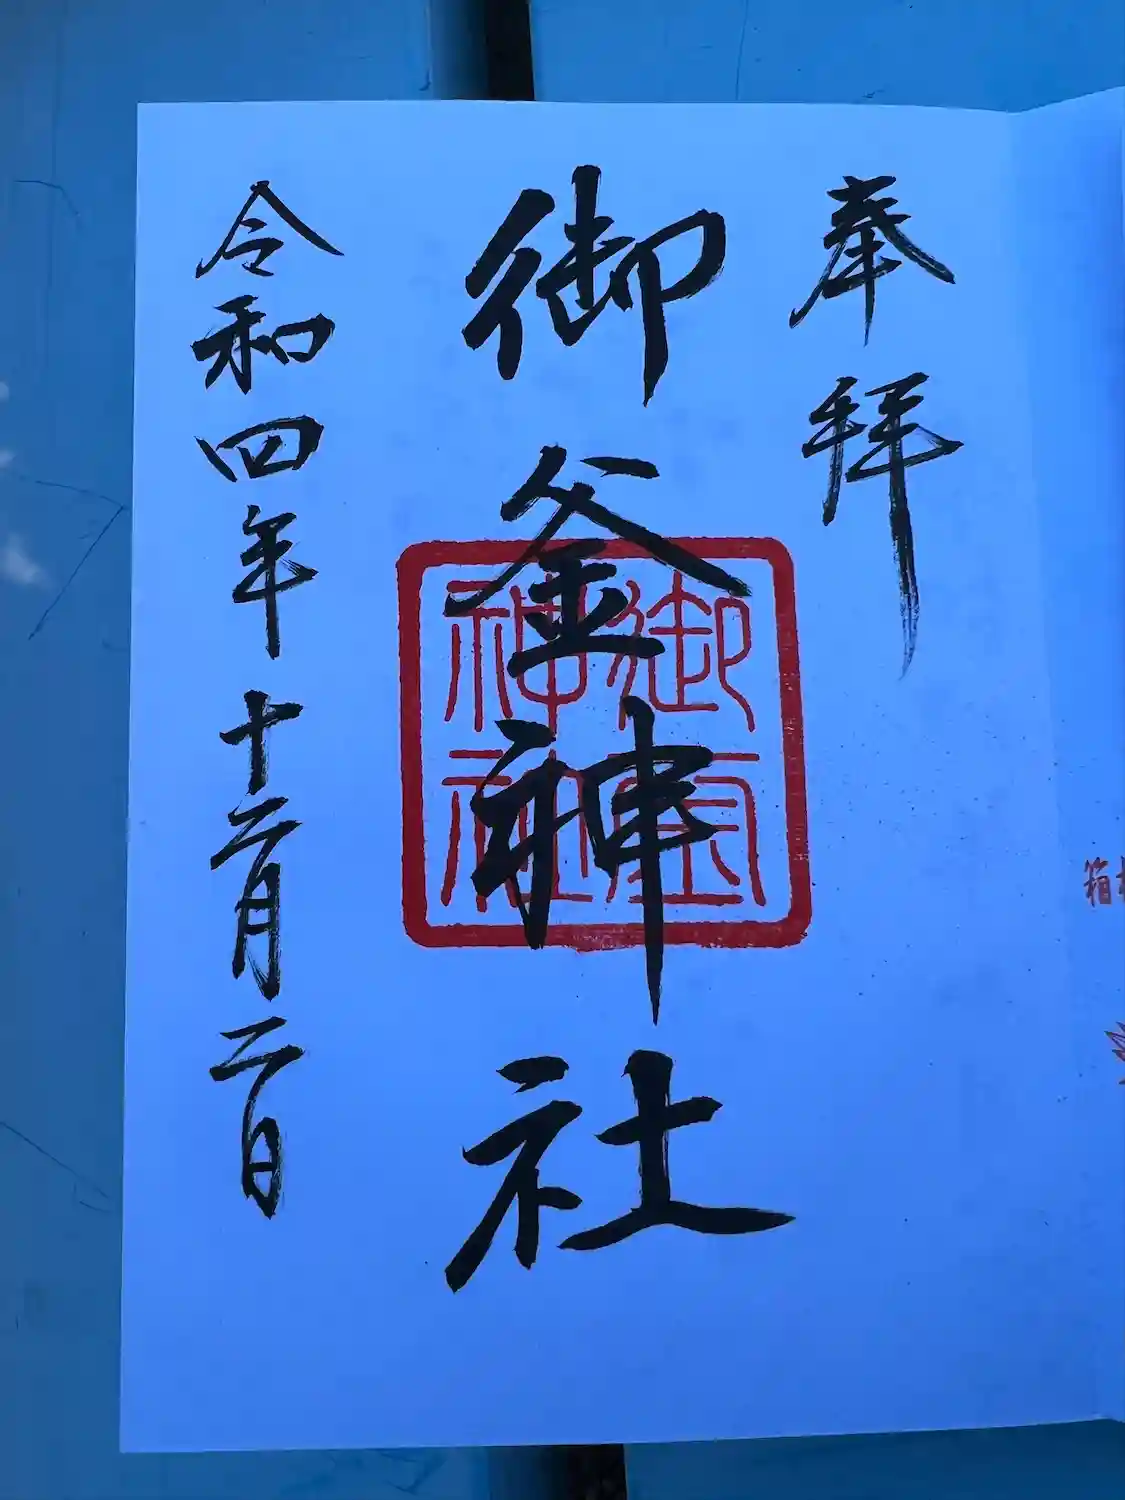 奉拝
御釜神社
御釜
神社
令和四年十二月二日
箱